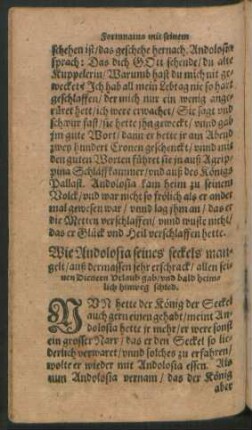 Fortunatus mit seinem
schehen ist/das geschehe hernach. Andolosia
sprach: Das dich GOtt schende/du alte
Kupplerin/Warumb hast du mich nit ge-
wecket? Jch hab all mein Lebtag nie so hart
geschlaffen/der mich nur ein wenig ange-
rüret hett/ich were erwachet/Sie sagt vnd
schwur fast/sie hette jhn geweckt/vnnd gab
jm gute Wort/dann er hette jr am Abend
zwey hundert Cronen geschenckt/vnnd mit
den guten Worten führet sie jn auß Agrip-
pina Schlaffkammer/vnd auß des Königs
Pallast. Andolosia kam heim zu seinem
Volck/vnd war nicht so frölich als er ander
mal gewesen war/vnnd lag jhm an/das er
die Metten verschlaffen/vnnd wuste nicht/
das er Glück vnd Heil verschlaffen hette.
Wie Andolosia seines seckels man-
gelt/auß dermassen sehr erschrack/allen sei-
nen Dienern Vrlaub gab/vnd bald heim-
lich hinweg schied.
NVN hette der König der Seckel
auch gern einen gehabt/meint An-
dolosia hette jr mehr/er were sonst
ein grosser Narr/das er den Seckel so lie-
derlich verwaret/vnnd solches zu erfahren/
wolte er wieder mit Andolosia essen. Als
nun Andolosia vernam/das der König
aber